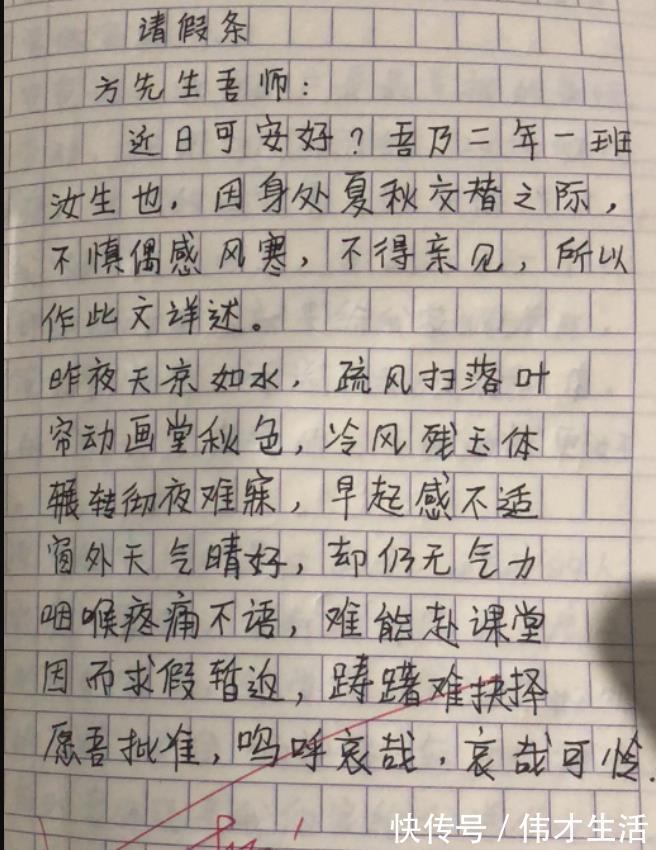 请假条
方先生吾师：
近日可安好？吾乃二年一班
汝生也，因身处夏秋交替之际，
不慎偶感风寒，不得亲见，所以
作此文详述。
昨夜天凉如水，疏风扫落叶
帘动画堂秋色，冷风残玉体
辗转彻夜难寐，早起感不适
窗外天气晴好，却仍无气力
咽喉疼痛不语，难能赴课堂
因而求假暂返，踌躇难抉择
愿吾批准，呜呼哀哉，哀哉可怜.
快传号/伟才生活